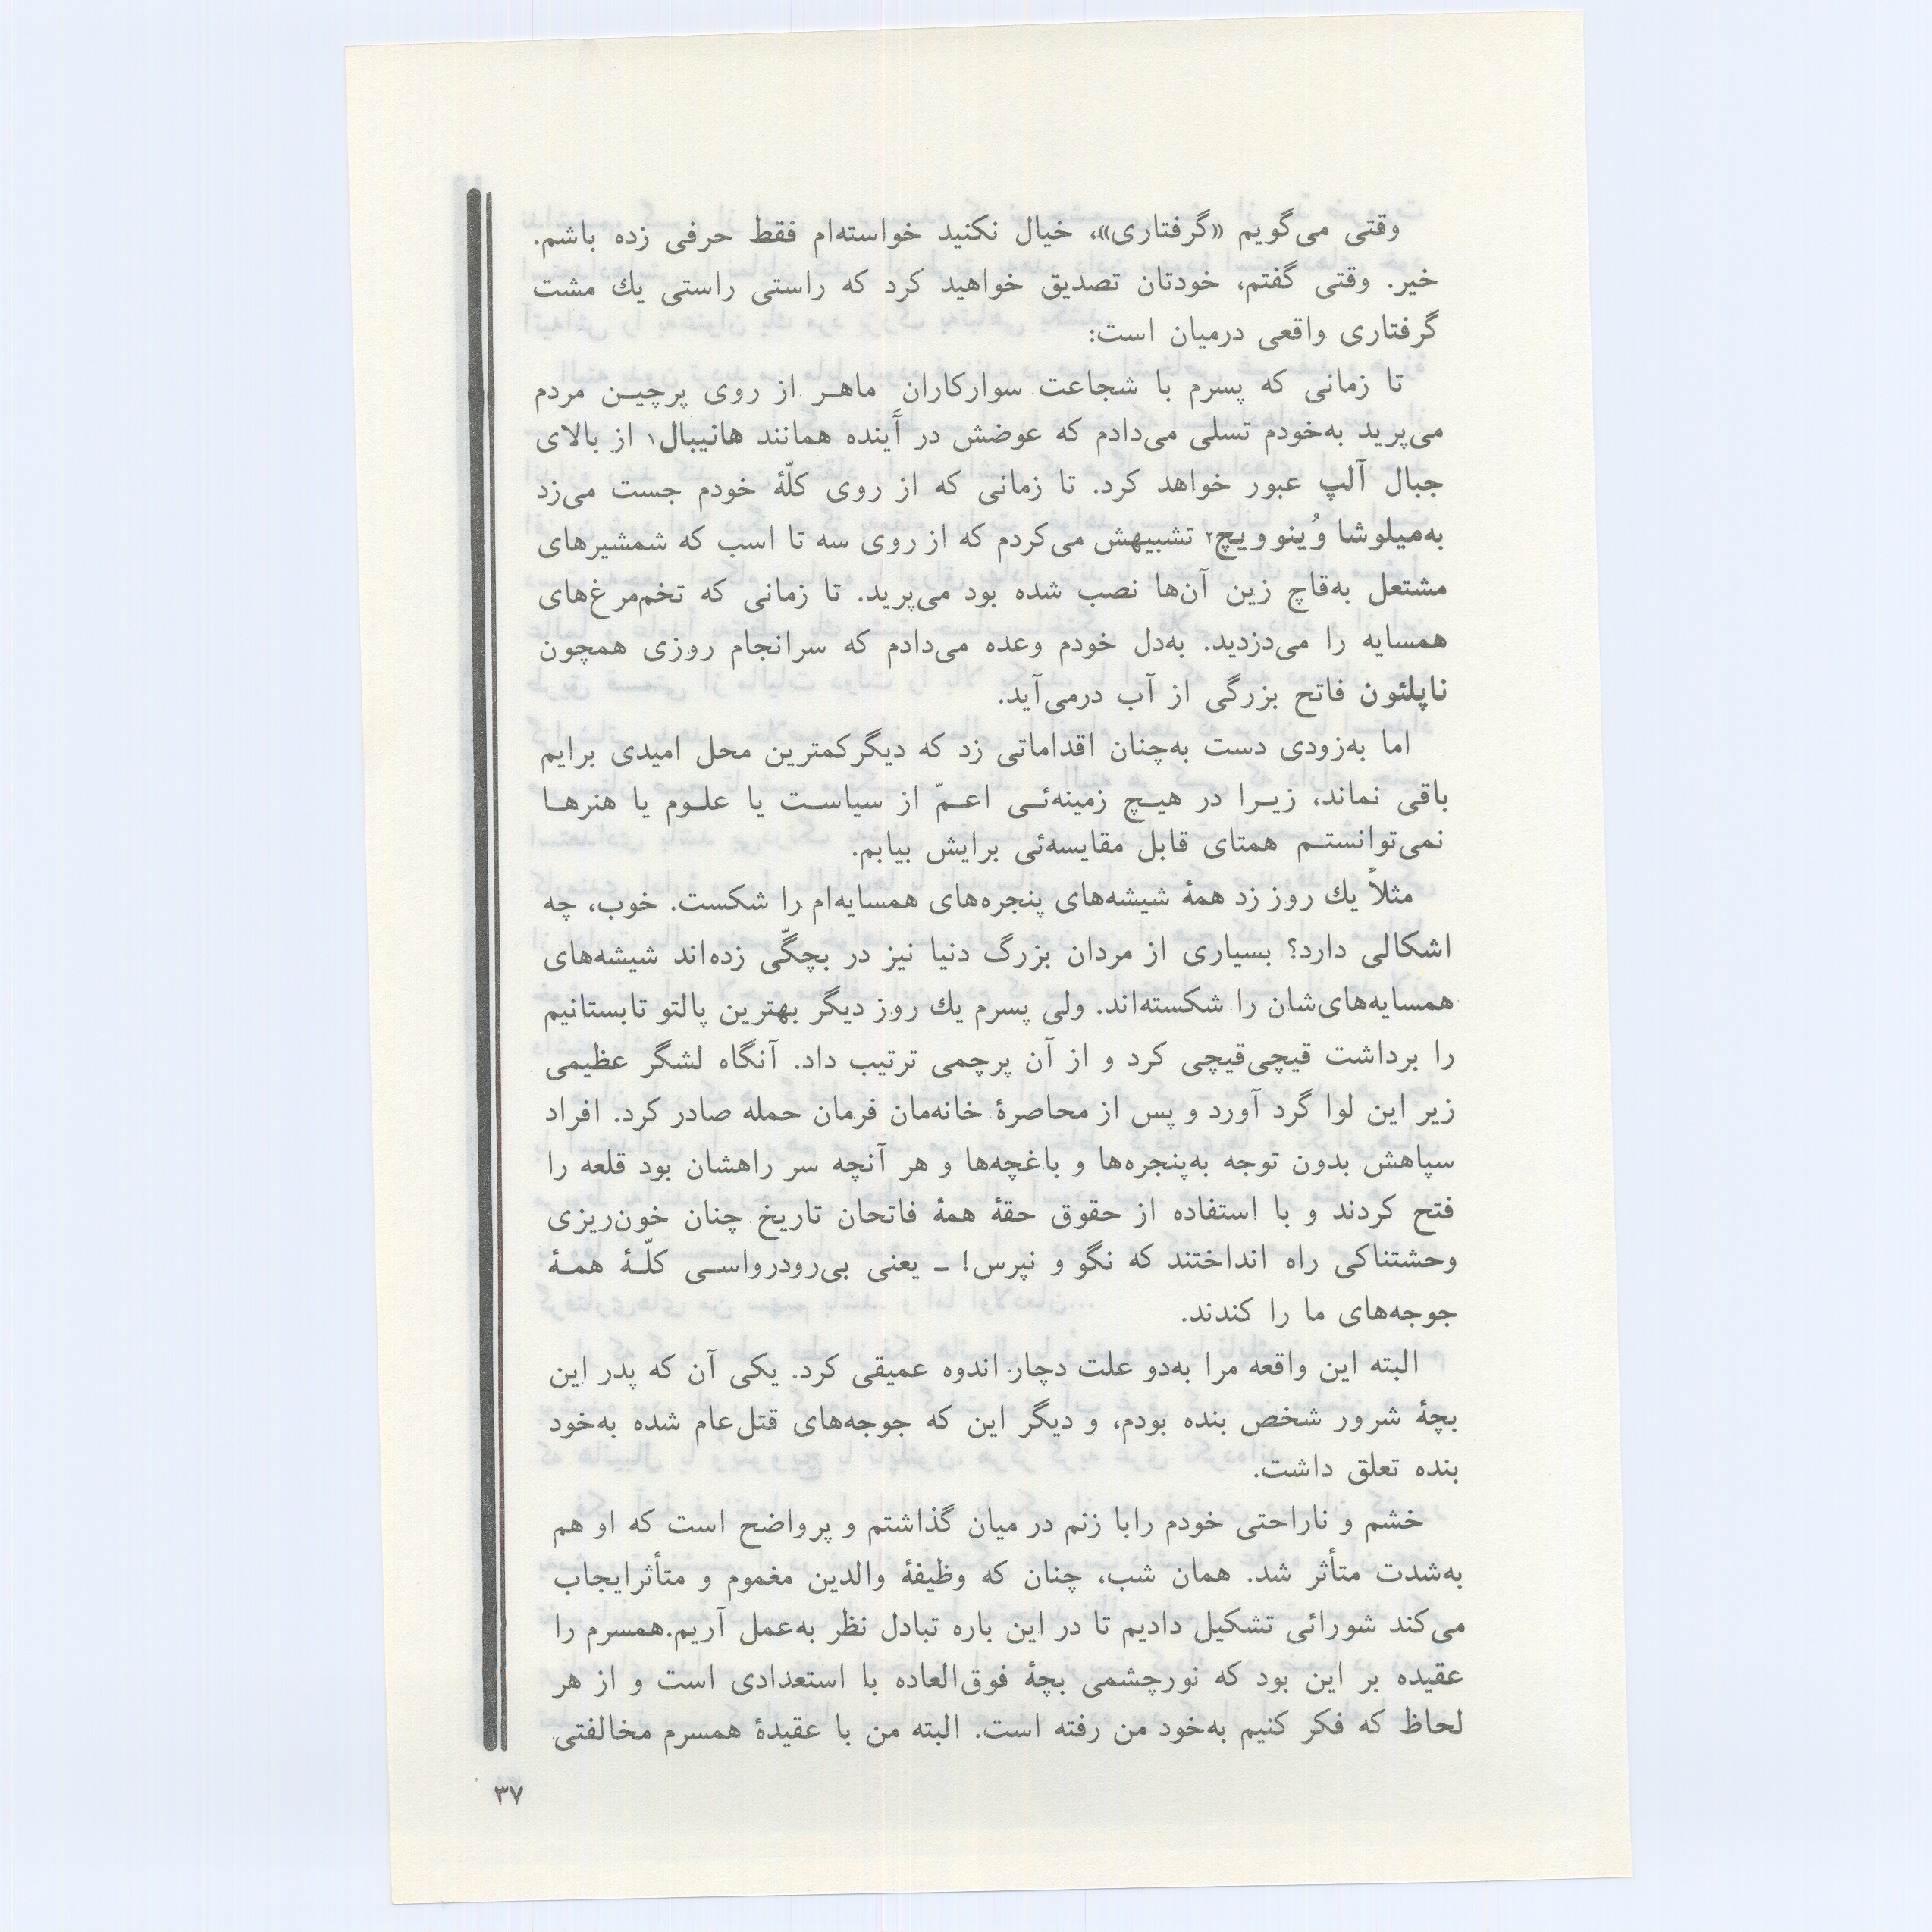 وقتی می‌گویم «گرفتاری»، خیال نکنید خواسته‌ام فقط حرفی زده باشم.
خیر. وقتی گفتم، خودتان تصدیق خواهید کرد که راستی راستی یك مشت
گرفتاری واقعی درمیان است:
تا زمانی که پسرم با شجاعت سوارکاران ماهـر از روی پرچیـن مردم
می‌پرید به‌خودم تسلی می‌دادم که عوضش در آینده همانند هانیبال۱ از بالای
جبال آلپ عبور خواهد کرد. تا زمانی که از روی کلّهٔ خودم جست می‌زد
به‌میلوشا وُینوویچ۲ تشبیهش می‌کردم که از روی سه تا اسب که شمشیرهای
مشتعل به‌قاچ زین آن‌ها نصب شده بود می‌پرید. تا زمانی که تخم‌مرغ‌های
همسایه را می‌دزدید. به‌دل خودم وعده می‌دادم که سرانجام روزی همچون
ناپلئون فاتح بزرگی از آب درمی‌آید.
اما به‌زودی دست به‌چنان اقداماتی زد که دیگرکمترین محل امیدی برایم
باقی نماند، زیـرا در هیـچ زمینه‌ئـی اعـمّ از سیاسـت یا علـوم یا هنرهـا
نمی‌توانستـم همتای قابل مقایسه‌ئی برایش بیابم.
مثلاً یك روز زد همهٔ شیشه‌های پنجره‌های همسایه‌ام را شکست. خوب، چه
اشکالی دارد؟ بسیاری از مردان بزرگ دنیا نیز در بچگّی زده‌اند شیشه‌های
همسایه‌های‌شان را شکسته‌اند. ولی پسرم یك روز دیگر بهترین پالتو تابستانیم
را برداشت قیچی‌قیچی کرد و از آن پرچمی ترتیب داد. آنگاه لشگر عظیمی
زیر این لوا گرد آورد و پس از محاصرهٔ خانه‌مان فرمان حمله صادر کرد. افراد
سپاهش بدون توجه به‌پنجره‌ها و باغچه‌ها و هر آنچه سر راهشان بود قلعه را
فتح کردند و با استفاده از حقوق حقهٔ همهٔ فاتحان تاریخ چنان خون‌ریزی
وحشتناکی راه انداختند که نگو و نپرس! ـ یعنی بی‌رودرواسـی کلّـهٔ همـهٔ
جوجه‌های ما را کندند.
البته این واقعه مرا به‌دو علت دچار اندوه عمیقی کرد. یکی آن که پدر این
بچهٔ شرور شخص بنده بودم، و دیگر این که جوجه‌های قتل‌عام شده به‌خود
بنده تعلق داشت.
خشم و ناراحتی خودم رابا زنم در میان گذاشتم و پرواضح است که او هم
به‌شدت متأثر شد. همان شب، چنان که وظیفهٔ والدین مغموم و متأثرایجاب
می‌کند شورائی تشکیل دادیم تا در این باره تبادل نظر به‌عمل آریم.همسرم را
عقیده بر این بود که نورچشمی بچهٔ فوق‌العاده با استعدادی است و از هر
لحاظ که فکر کنیم به‌خود من رفته است. البته من با عقیدهٔ همسرم مخالفتی
۳۷